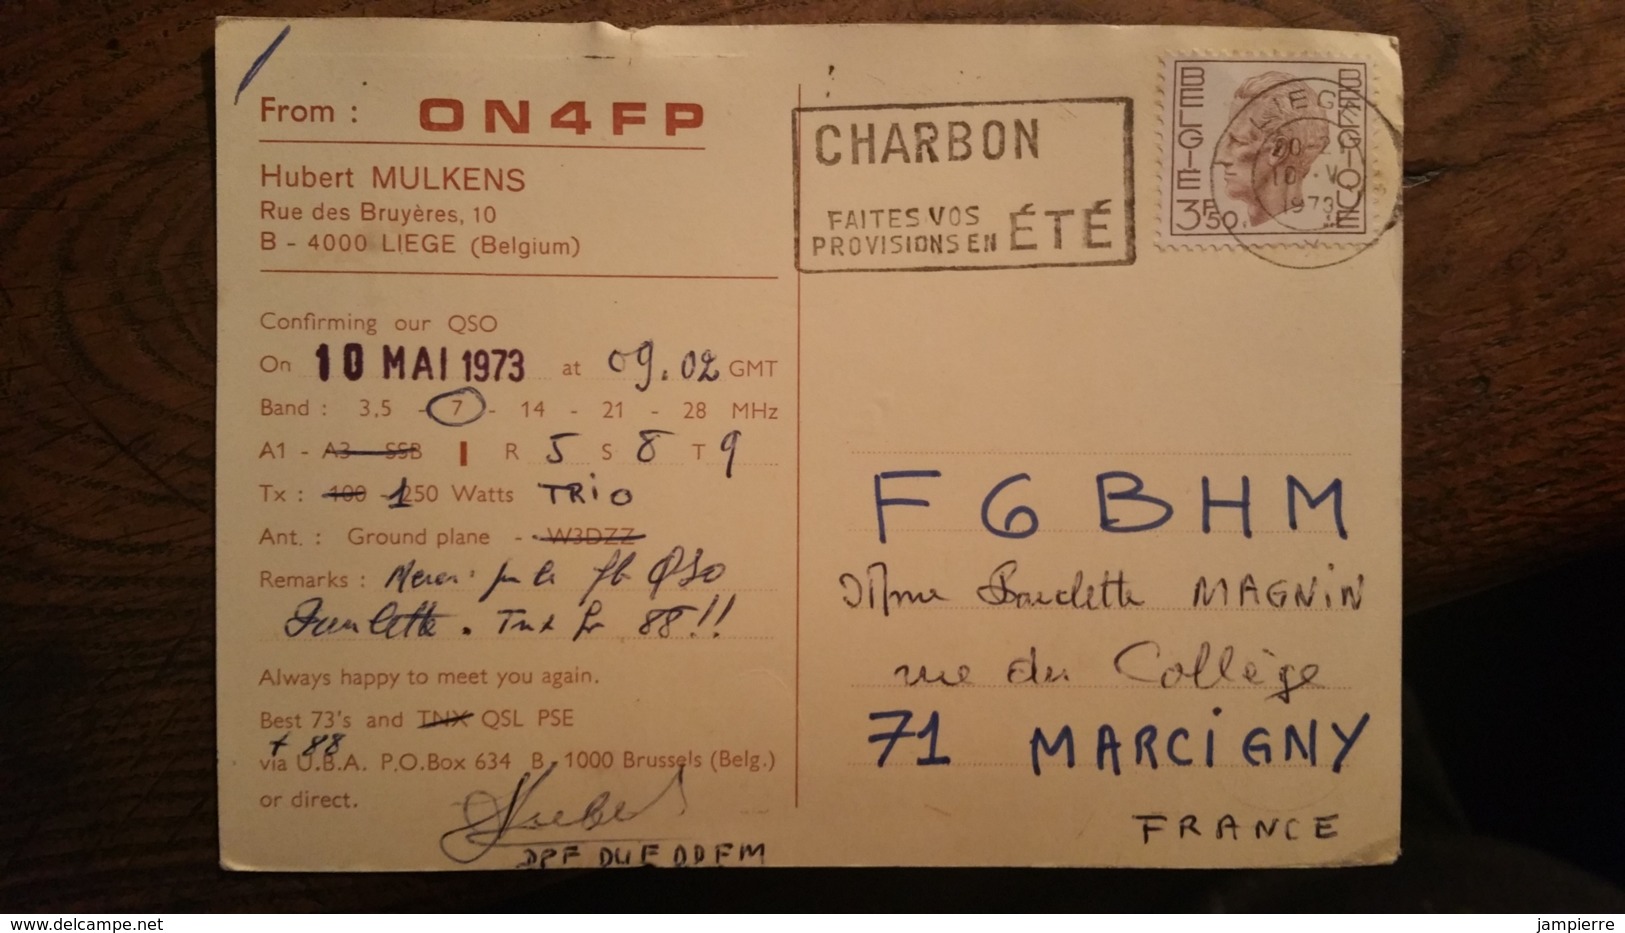 From : ON4FP
Hubert MULKENS
Rue des Bruyères, 10
B - 4000 LIEGE (Belgium)
Confirming our QSO
On 10 MAI 1973 at 09.02 GMT
Band : 3,5 - 7 - 14 - 21 - 28 MHz
A1 - A3 SSB R 5 S 8 T 9
Tx : 100 - 150 Watts TRIO
Ant. : Ground plane - W3DZZ
Remarks : Merci fb QSO
88!!
Always happy to meet you again.
Best 73's and TNX QSL PSE
+ 88
via U.B.A. P.O.Box 634 B. 1000 Brussels (Belg.)
or direct.
Hubert
CHARBON
FAITES VOS
PROVISIONS EN ÉTÉ
BELGIE BELGIQUE
3F50
LIEGE
10 V
1973
F6BHM
Mme MAGNIN
rue du Collège
71 MARCIGNY
FRANCE
www.delcampe.net
jampierre